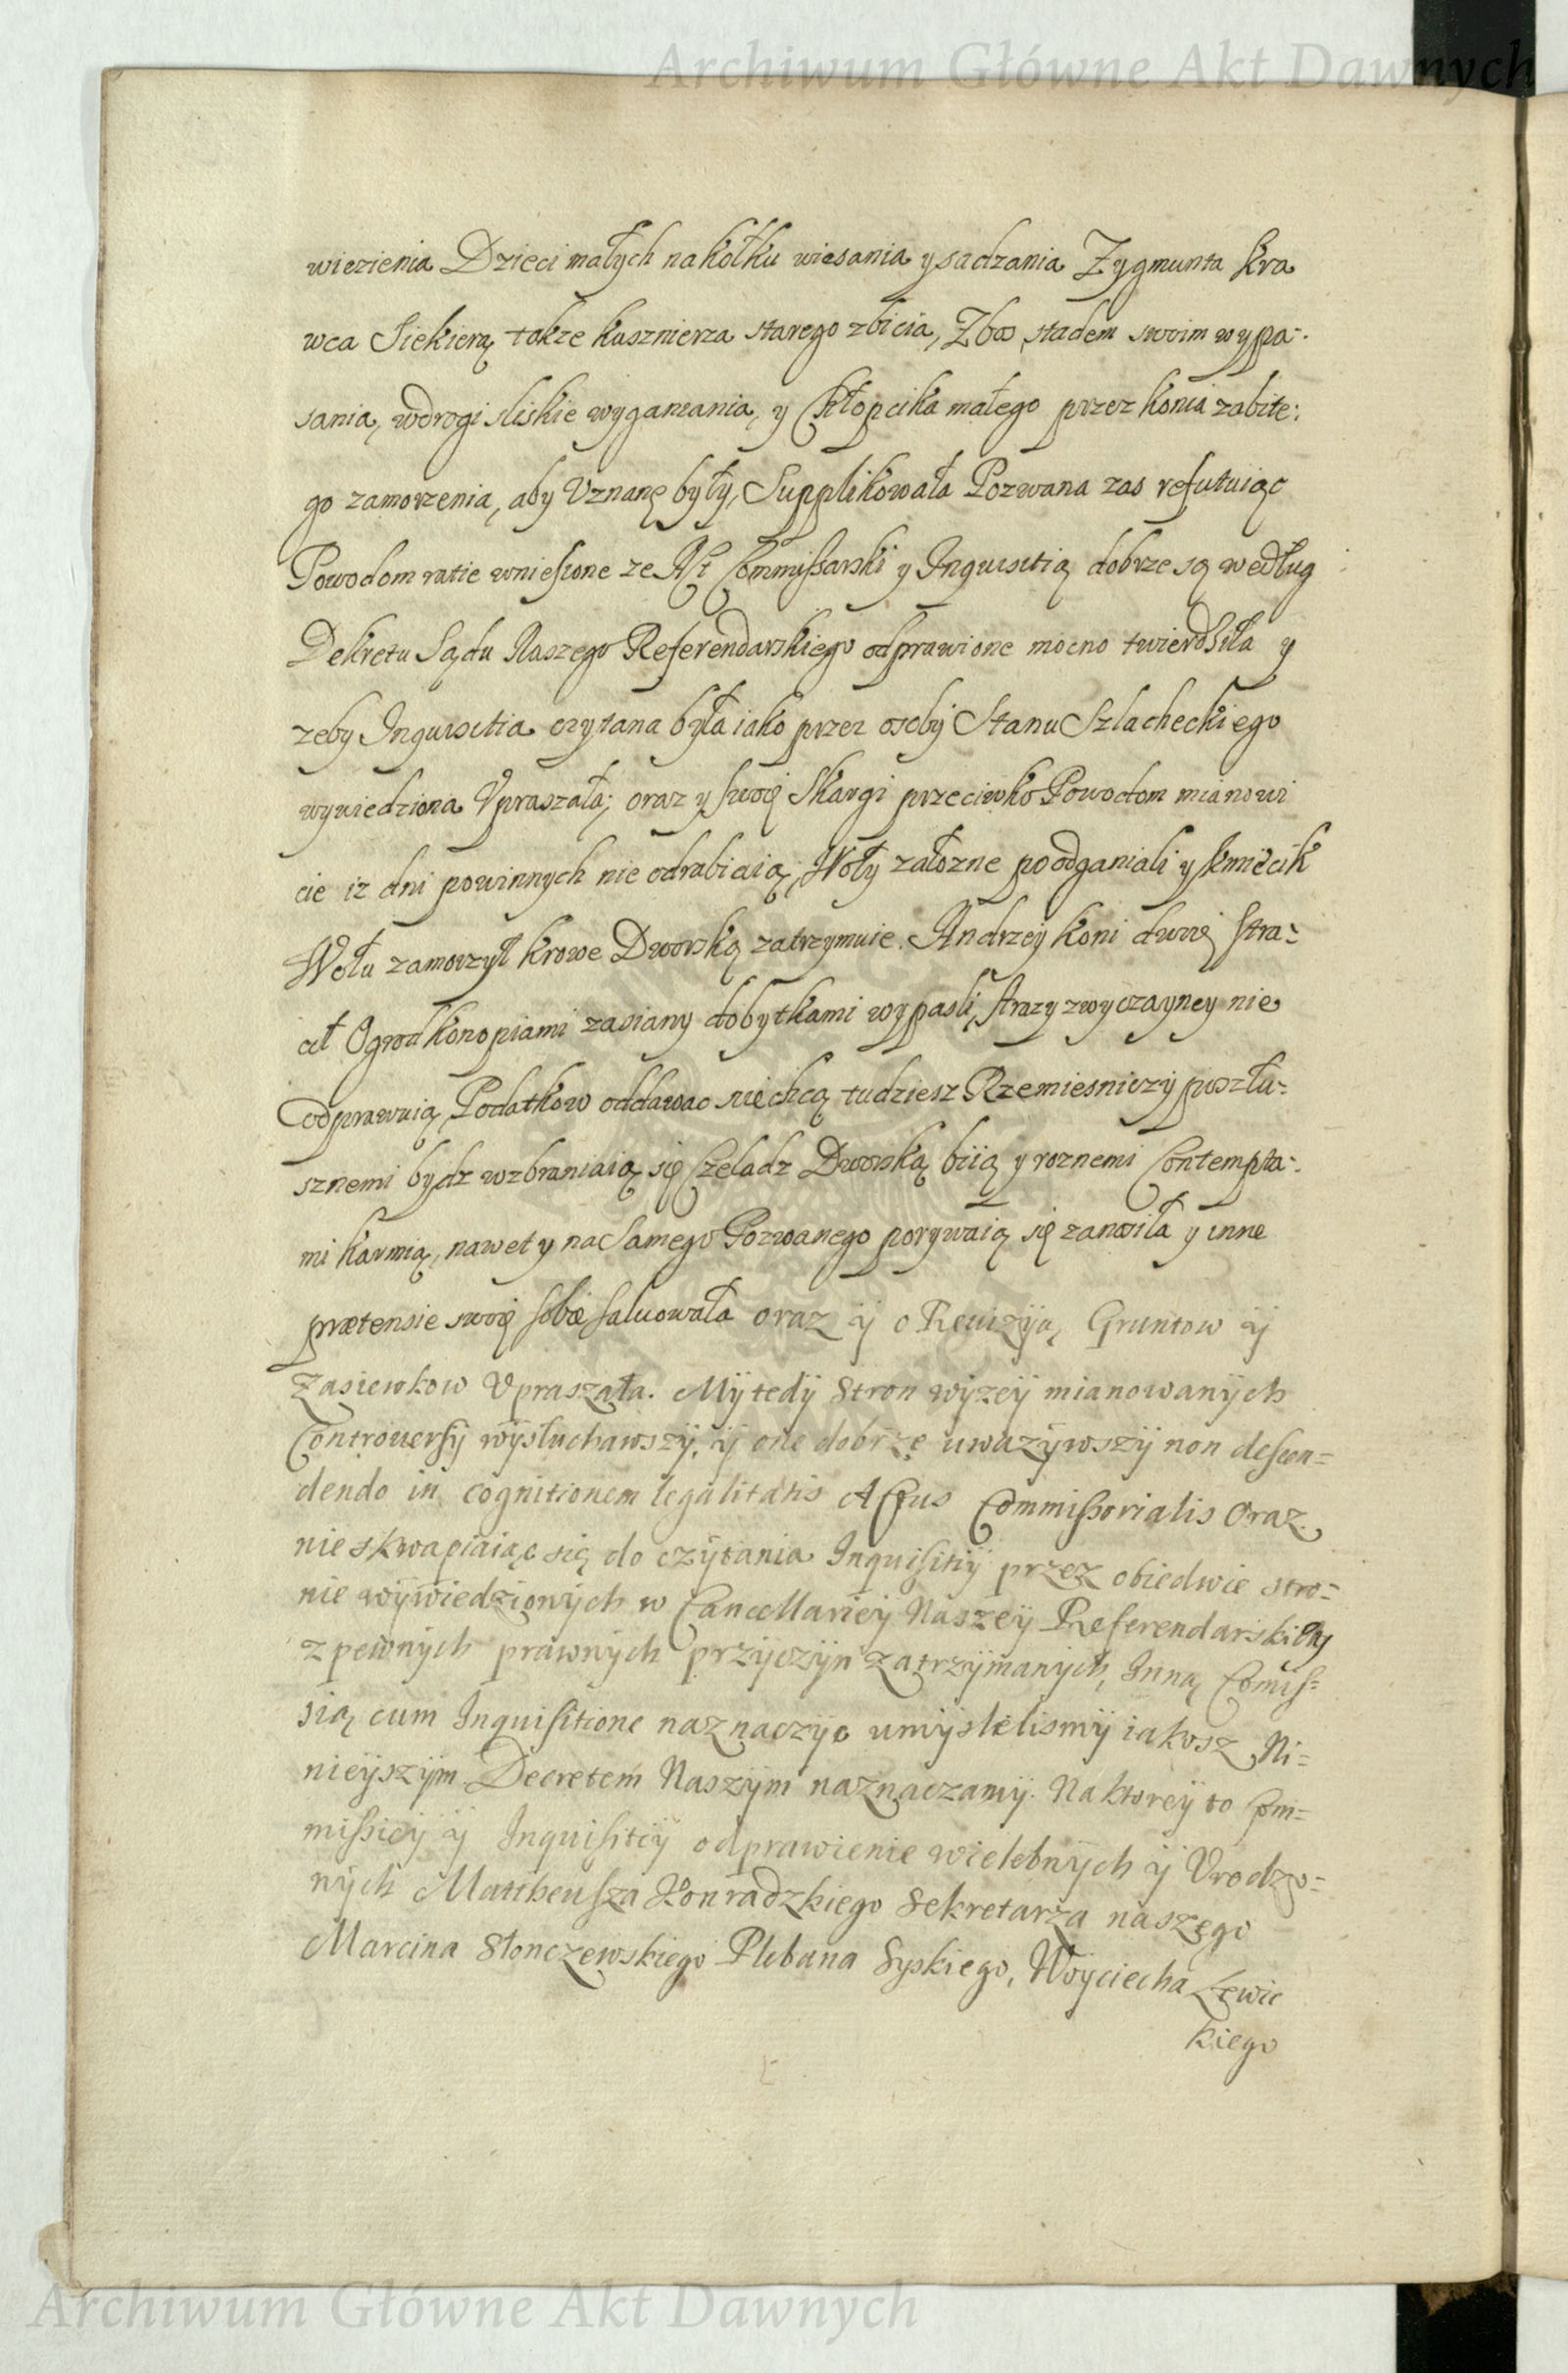 Archiwum Główne Akt Dawnych
wiezienia Dzieci małych na kołku wiesania y sadzania Zygmunta kra
wca Siekierą takze kusznierza starego zbicia, Zboz stadem swoim wypa-
sania, w drogi sliskie wyganiania, y Chłopcika małego przez konia zabite-
go zamorzenia, aby Uznanę były, Supplikowała Pozwana zas refutuiąc
Powodom ratie wniesione ze Act Commissarski y Inquisitią dobrze są według
Dekretu Sądu Naszego Referendarskiego odprawione mocno twierdsiła y
zeby Inquisitia czytana była iako przez osoby Stanu Szlacheckiego
wywiedziona Upraszała; oraz y swoię Skargi przeciwko Powodom mianowi
cie iz dni powinnych nie odrabiaią, Woły załozne poodganiali y kmiecik
Wołu zamorzył krowe Dworską zatrzymuie. Andrzey koni dwoię stra-
cił Ogrod konopiami zasiany dobytkami wypasli, strazy zwyczayney nie
odprawuią, Podatkow oddawac niechcą tudziesz Rzemiesniczy poszłu-
sznemi bydz wzbraniaią się Czeladz Dworską biią y roznemi Contempta-
mi karmią, nawet y na Samego Pozwanego porywaią się zanosiła y inne
prætensie swoię sobie salwowała oraz ÿ o Rewizÿą Gruntow ÿ
Zasiewkow Upraszała. Mÿ tedÿ Stron wÿzeÿ mianowanÿch
Controversÿ wÿsłuchawszÿ, ÿ one dobrze uwazÿwszÿ non descen=
dendo in cognitionem legalitatis Actus Commissorialis Oraz
nie skwapiaiąc się do czÿtania Inquisitiÿ przez obiedwie stro=
nie wÿwiedzionÿch w Cancellarieÿ Naszeÿ Referendarskieÿ
z pewnÿch prawnÿch przÿczÿn zatrzÿmanÿch, Inną Comis=
sią cum Inquisitione naznaczÿc umÿslelismÿ iakosz Ni=
nieÿszÿm Decretem Naszÿm naznaczamÿ. Na ktoreÿ to Com=
missieÿ ÿ Inquisitiÿ odprawienie wielebnÿch ÿ Urodzo=
nÿch Mattheusza Konradzkiego Sekretarza naszego
Marcina Słonczewskiego Plebana Syskiego, Woÿciecha Lewic
kiego
Archiwum Główne Akt Dawnych